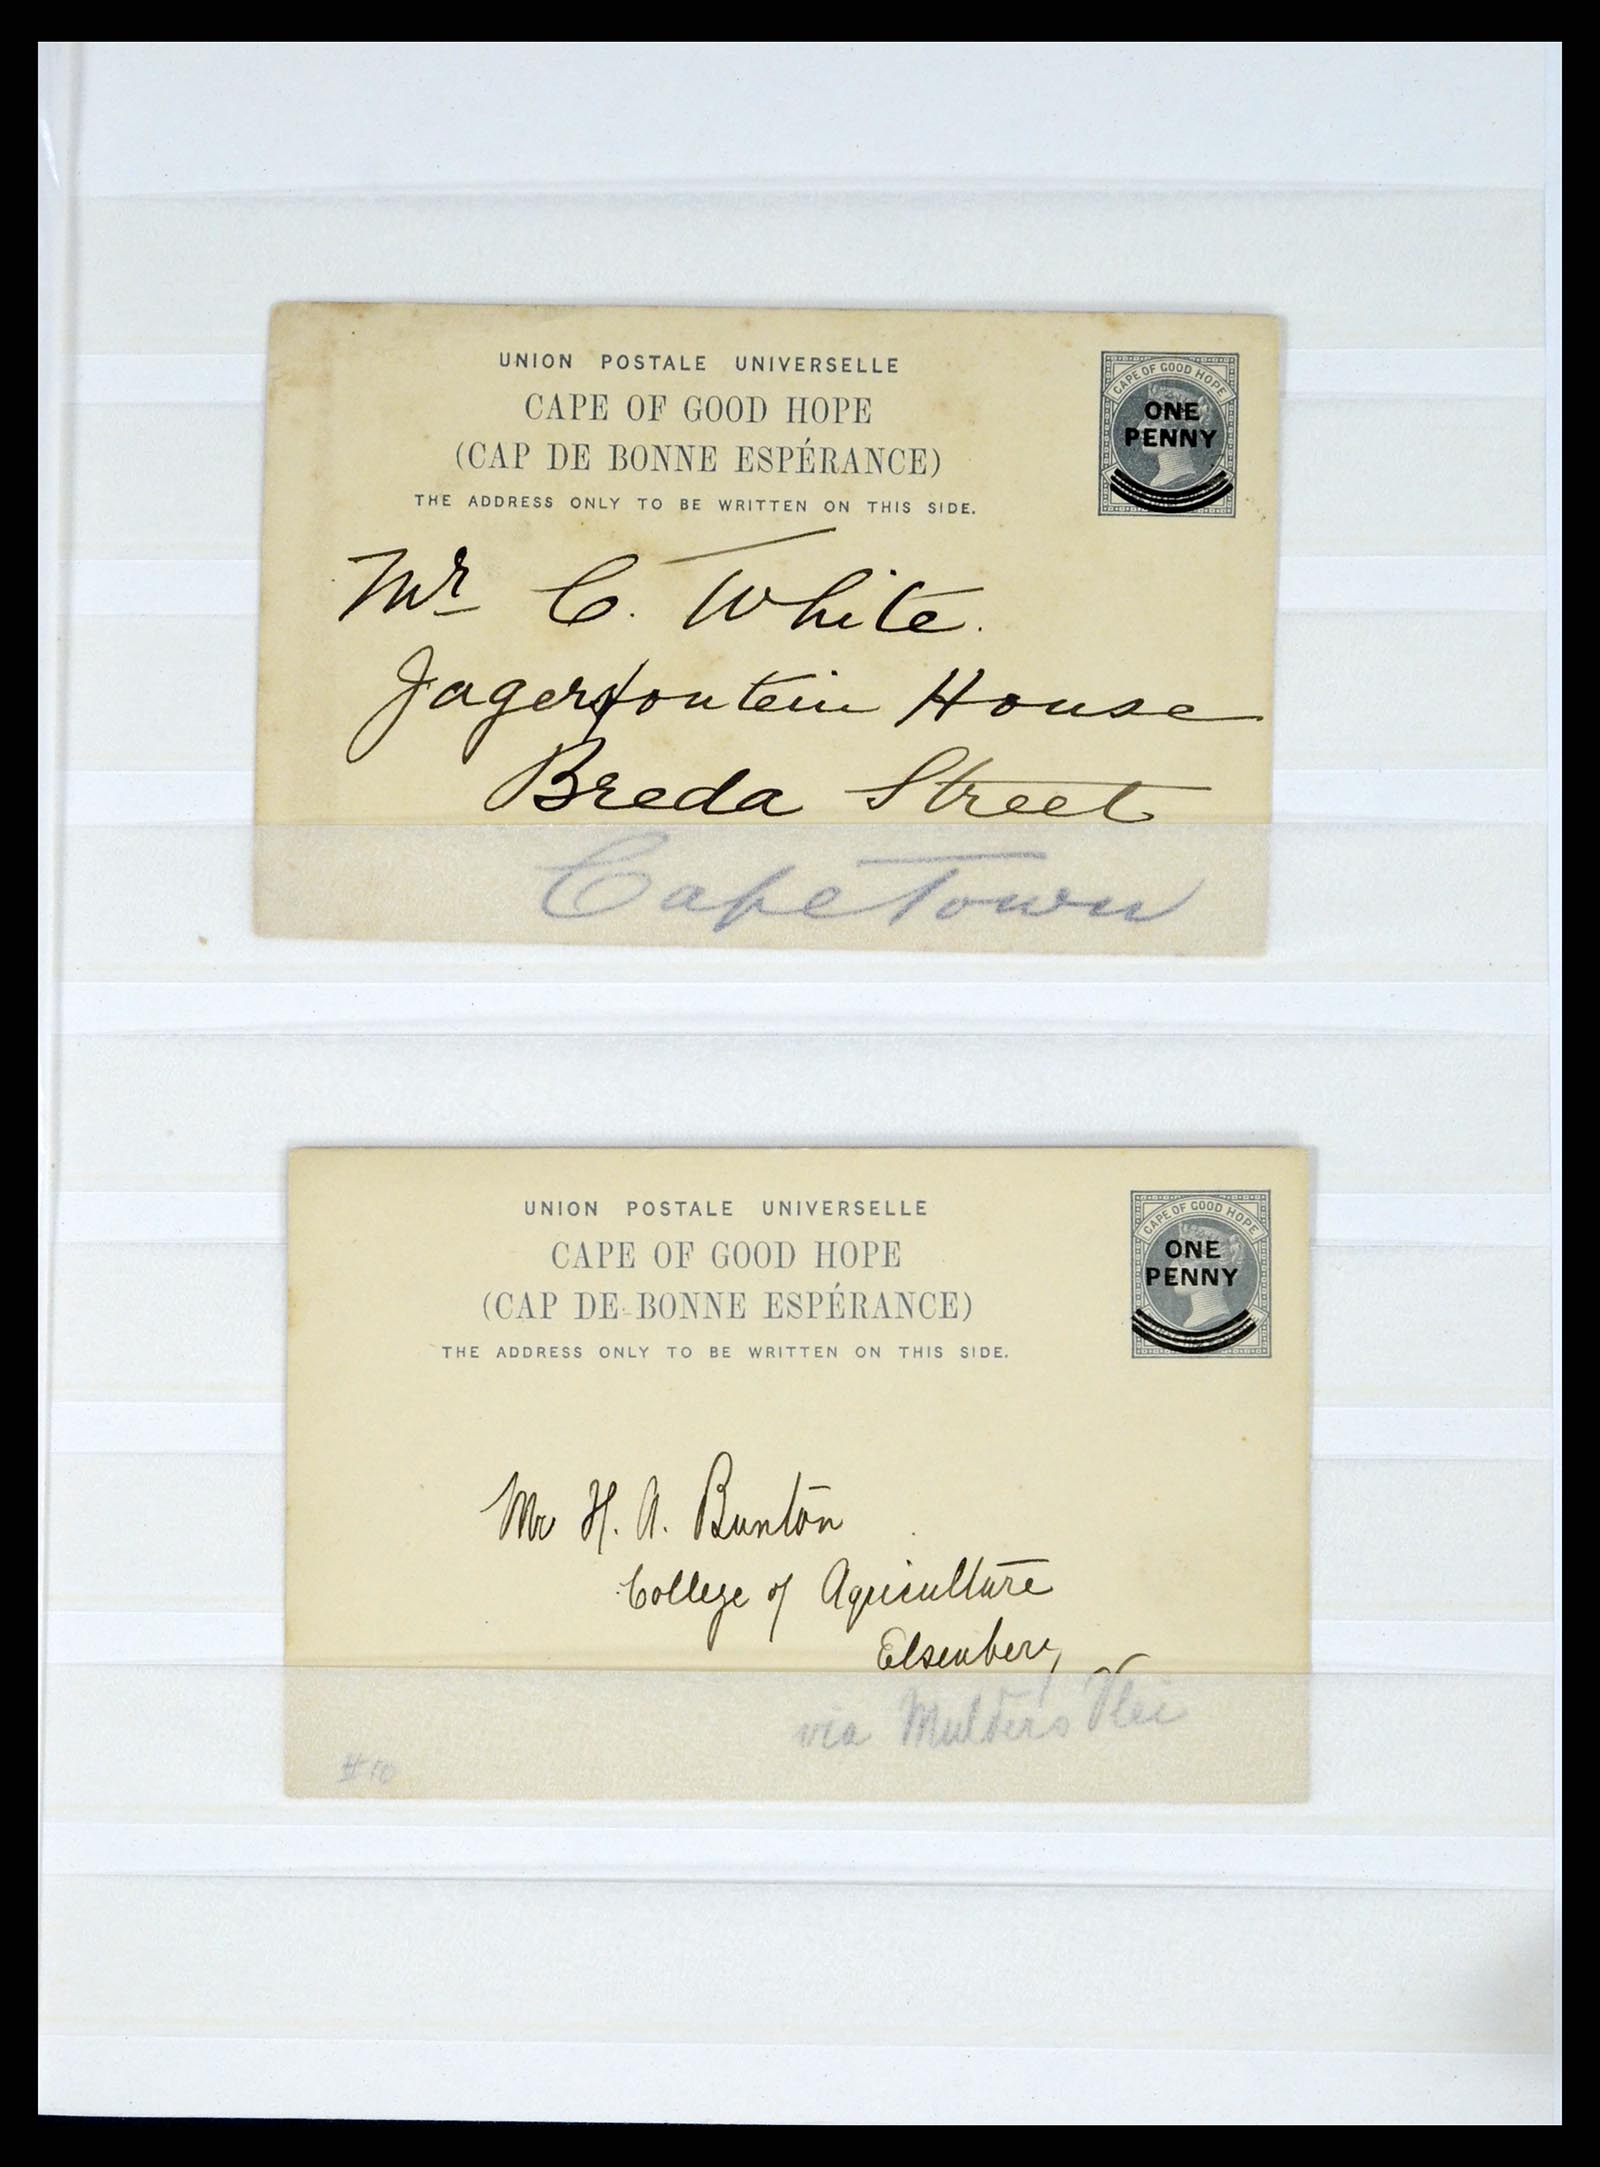 UNION POSTALE UNIVERSELLE
CAPE OF GOOD HOPE
(CAP DE BONNE ESPÉRANCE)
THE ADDRESS ONLY TO BE WRITTEN ON THIS SIDE.
CAPE OF GOOD HOPE
ONE
PENNY
Mr C. White.
Jagersfontein House
Breda Street
Cape Town
UNION POSTALE UNIVERSELLE
CAPE OF GOOD HOPE
(CAP DE BONNE ESPÉRANCE)
THE ADDRESS ONLY TO BE WRITTEN ON THIS SIDE.
CAPE OF GOOD HOPE
ONE
PENNY
Mr H. A. Bunton
College of Agriculture
Elsenberg
via Mulders Vlei
#10